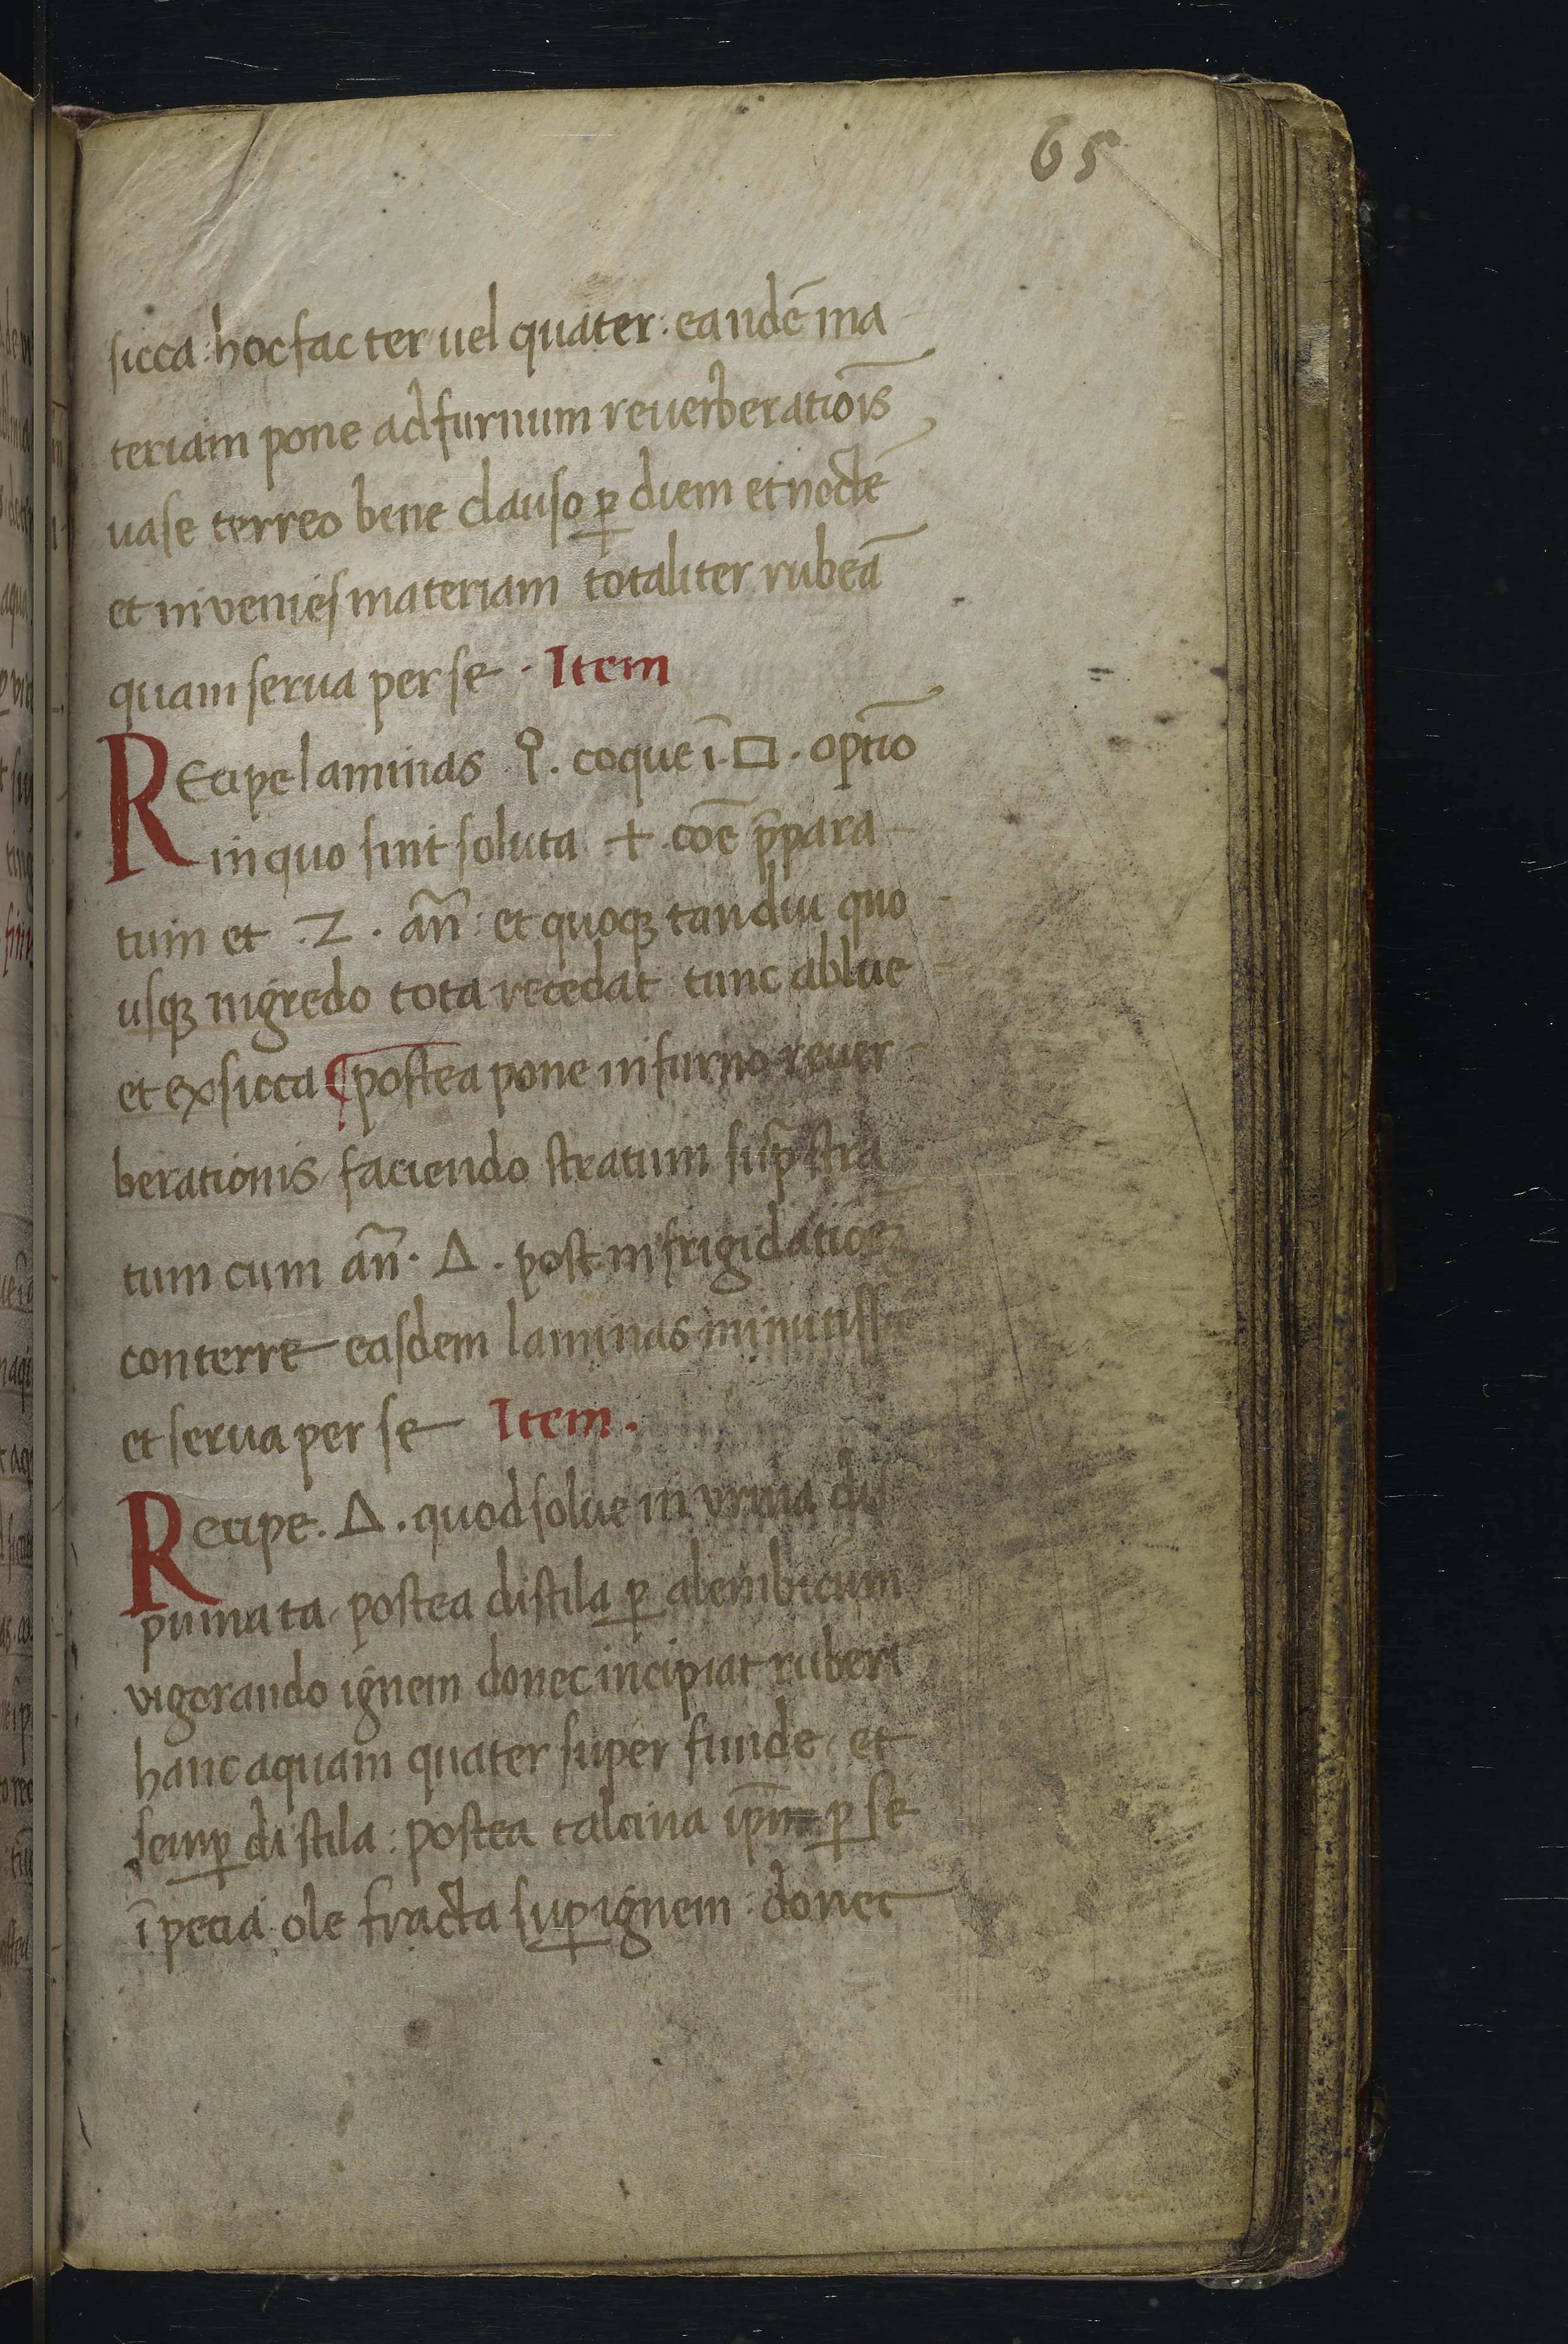 65
sicca : hoc fac ter uel quater : eandē ma
teriam pone ad furnum reuerberatiōis
uase terreo bene clauso ꝑ diem et noctē
et invenies materiam totaliter rubeā
quam serua per se · Item
REcipe laminas ♀ . coque ī . □ . optīo
in quo sint soluta + . coē p̄para
tum et . Z . añ : et quoqꝫ tandiu quo
usqꝫ nigredo tota recedat tunc ablue
et exsicca ¶ postea pone in furno reuer
berationis faciendo stratum sup̄ stra
tum cum añ . Δ . post infrigidatiōeꝫ
conterre easdem laminas minutiss
et serua per se Item .
Recipe . Δ . quod solue in vrina dis
pumata , postea distila ꝑ alembicum
vigorando ignem donec incipiat ruberi
hanc aquam quater super funde , et
semꝑ distila : postea calcina ip̄m ꝑ se
ī pecia ole fracta suꝑ ignem : donec